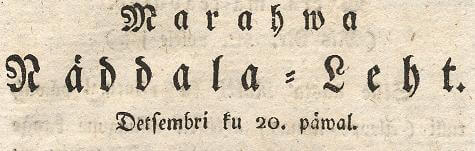 Marahwa
Näddala-Leht.
Detsembri ku 20. päwal.